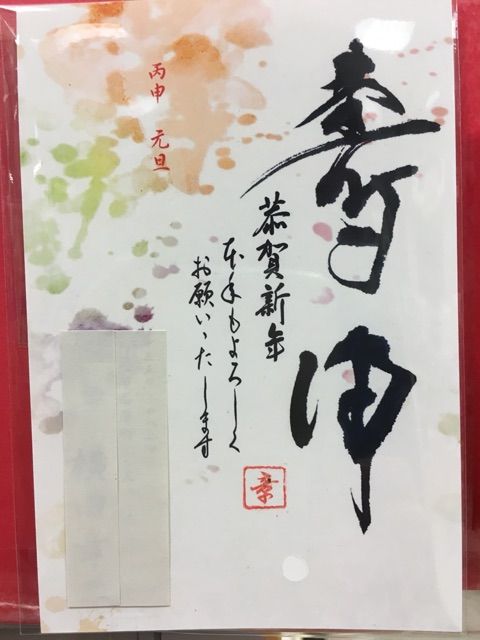 壽申
恭賀新年
本年もよろしく
お願いいたします
丙申 元旦